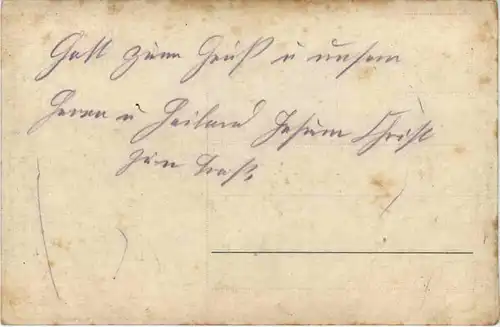 Gott zum Gruß u unsern
Herrn u Heiland Jesum Christ
zum Trost.